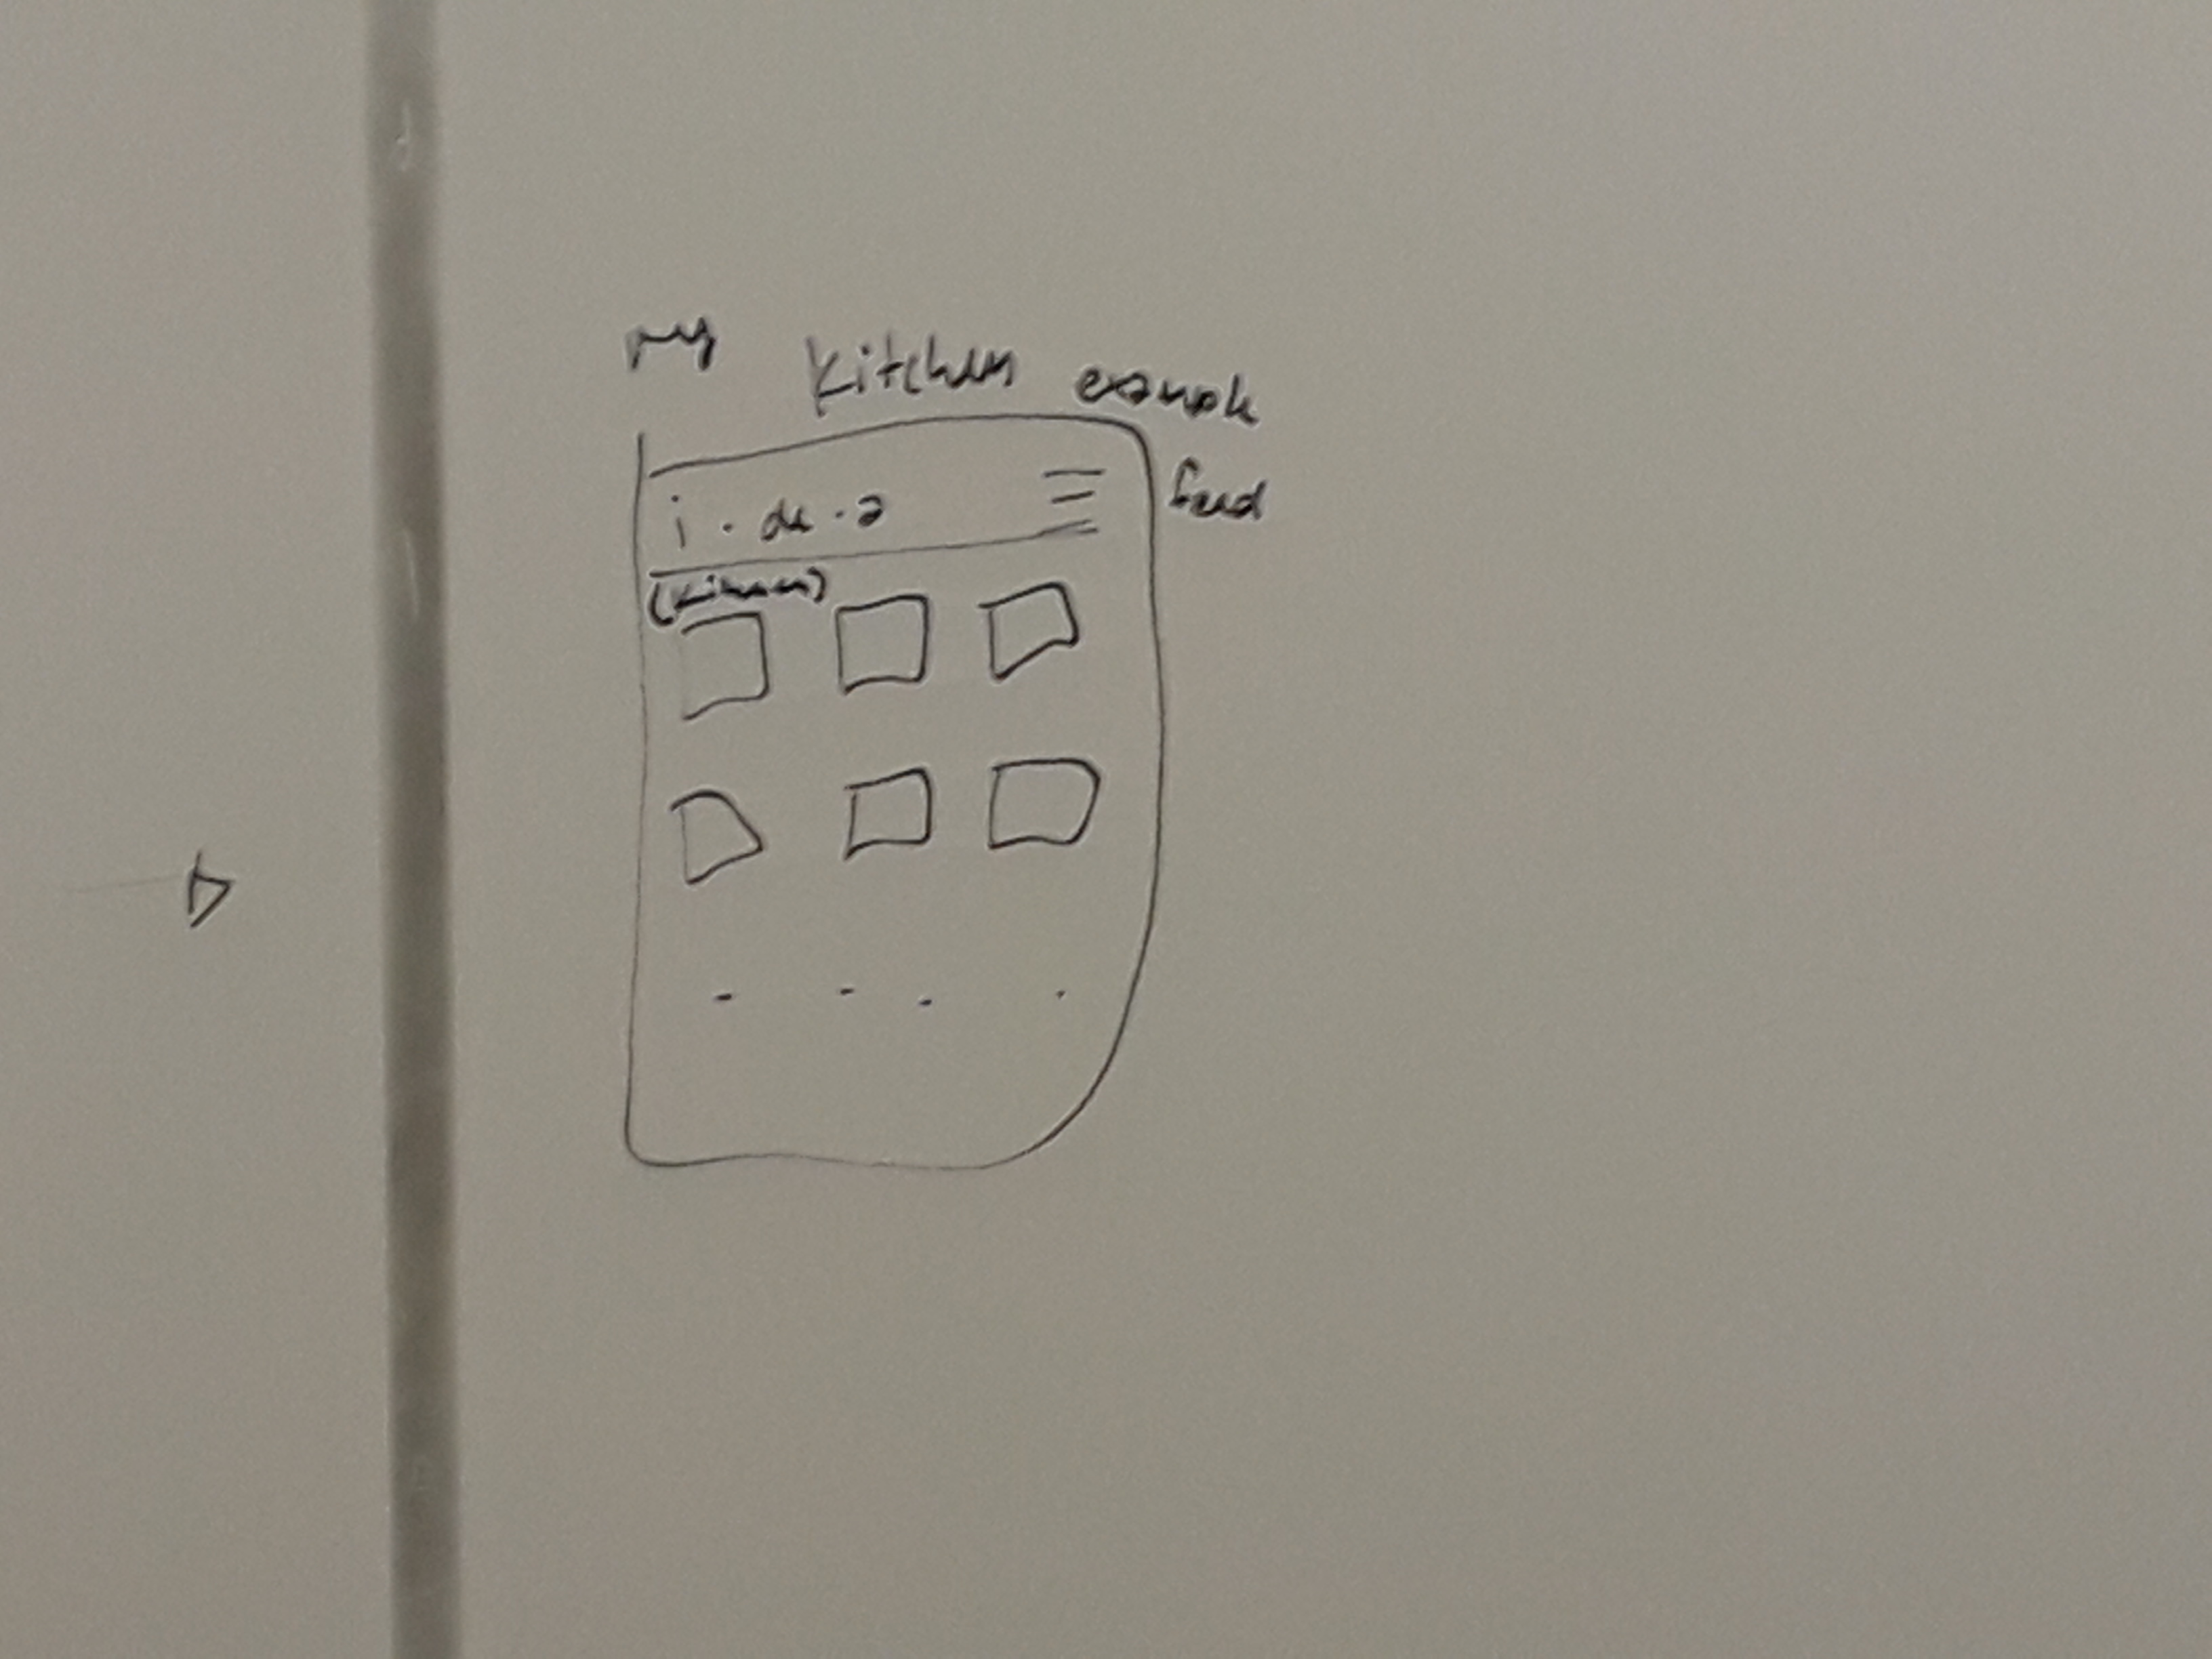 my kitchen example
feed
i · de · a
(kitchen)